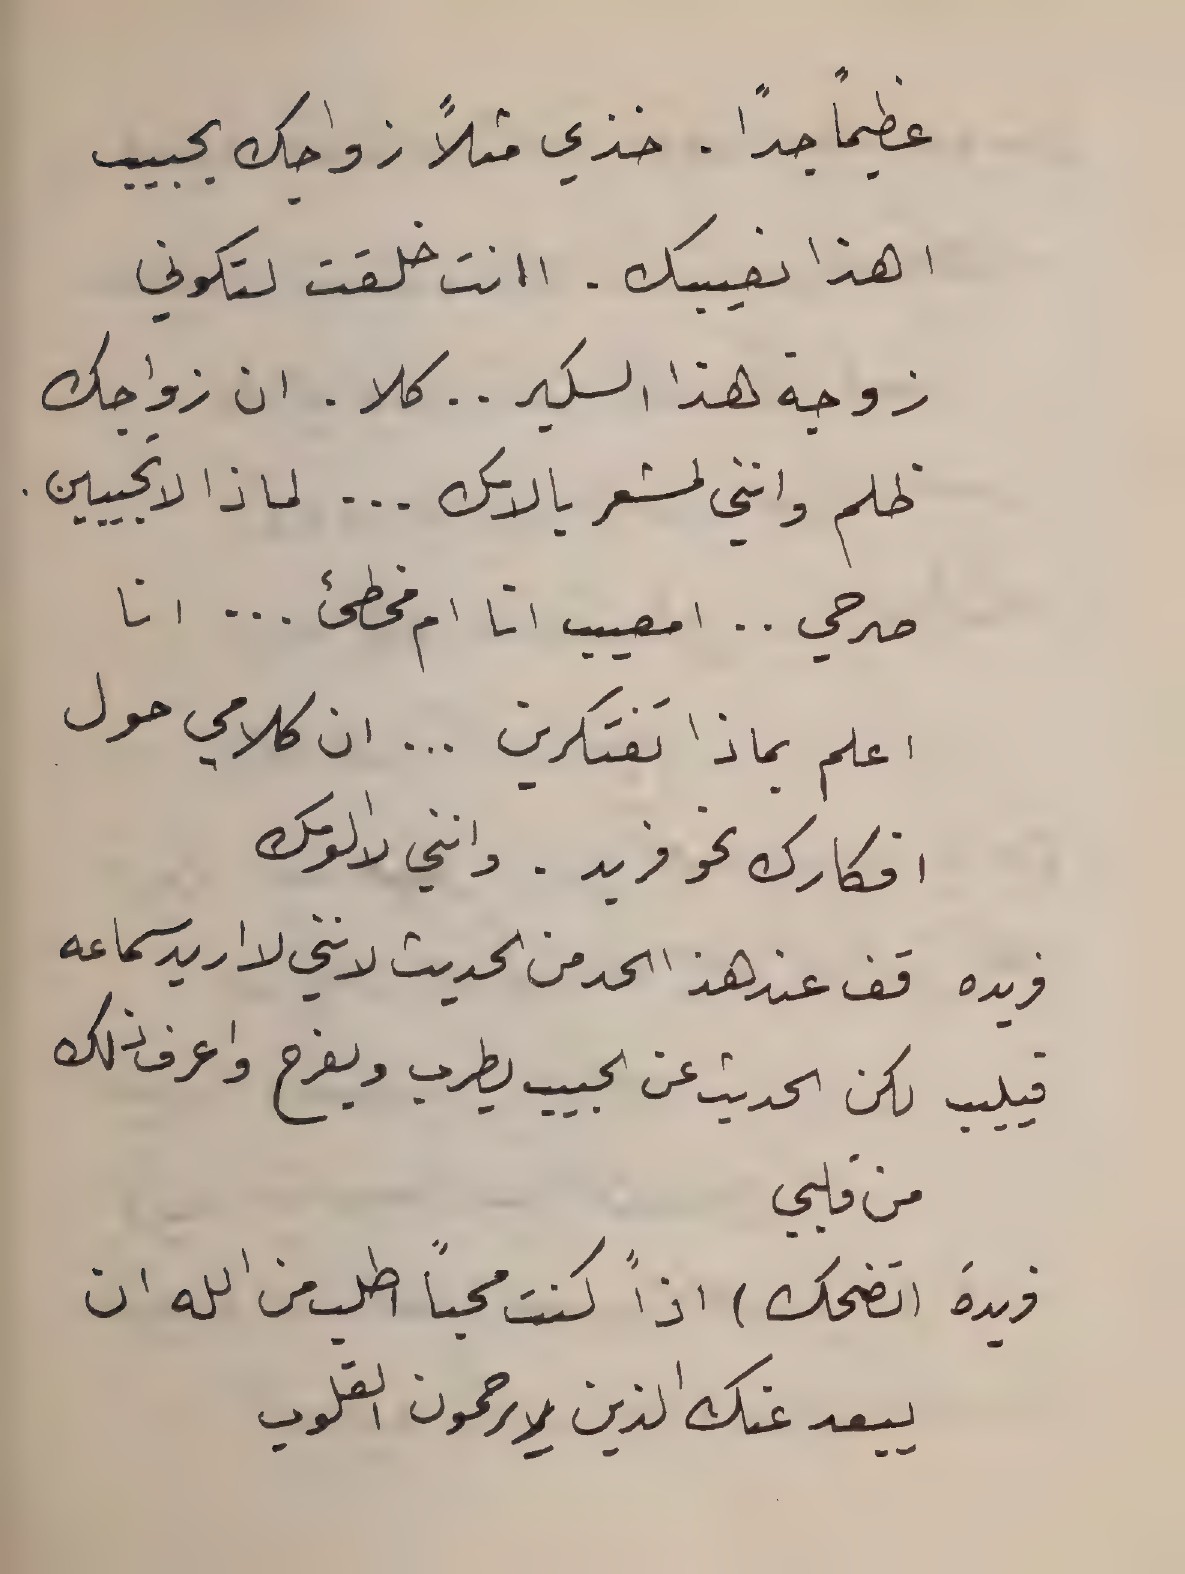 عظيماً جداً . خذي مثلاً زواجك بحبيب
اهذا نصيبك . اانت خلقت لتكوني
زوجة هذا السكير .. كلا . ان زواجك
ظلم وانني لمشعر بالامك ... لماذا لا تجيبين .
صرحي .. امصيب انا ام مخطئ ... انا
اعلم بماذا تفتكرين ... ان كلامي حول
افكارك نحو فريد . وانني لا الومك
فريده قف عند هذا الحد من الحديث لانني لا اريد سماعه
فيليب لكن الحديث عن الحبيب يطرب ويفرح واعرف ذلك
من قلبي
فريدة (تضحك) اذاً كنت محباً اطلب من الله ان
يبعد عنك الذين لا يرحمون القلوب